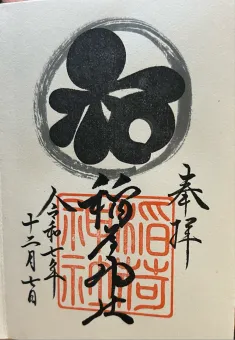 奉拝
稲荷神社
稲荷
神社
令和七年
十二月七日